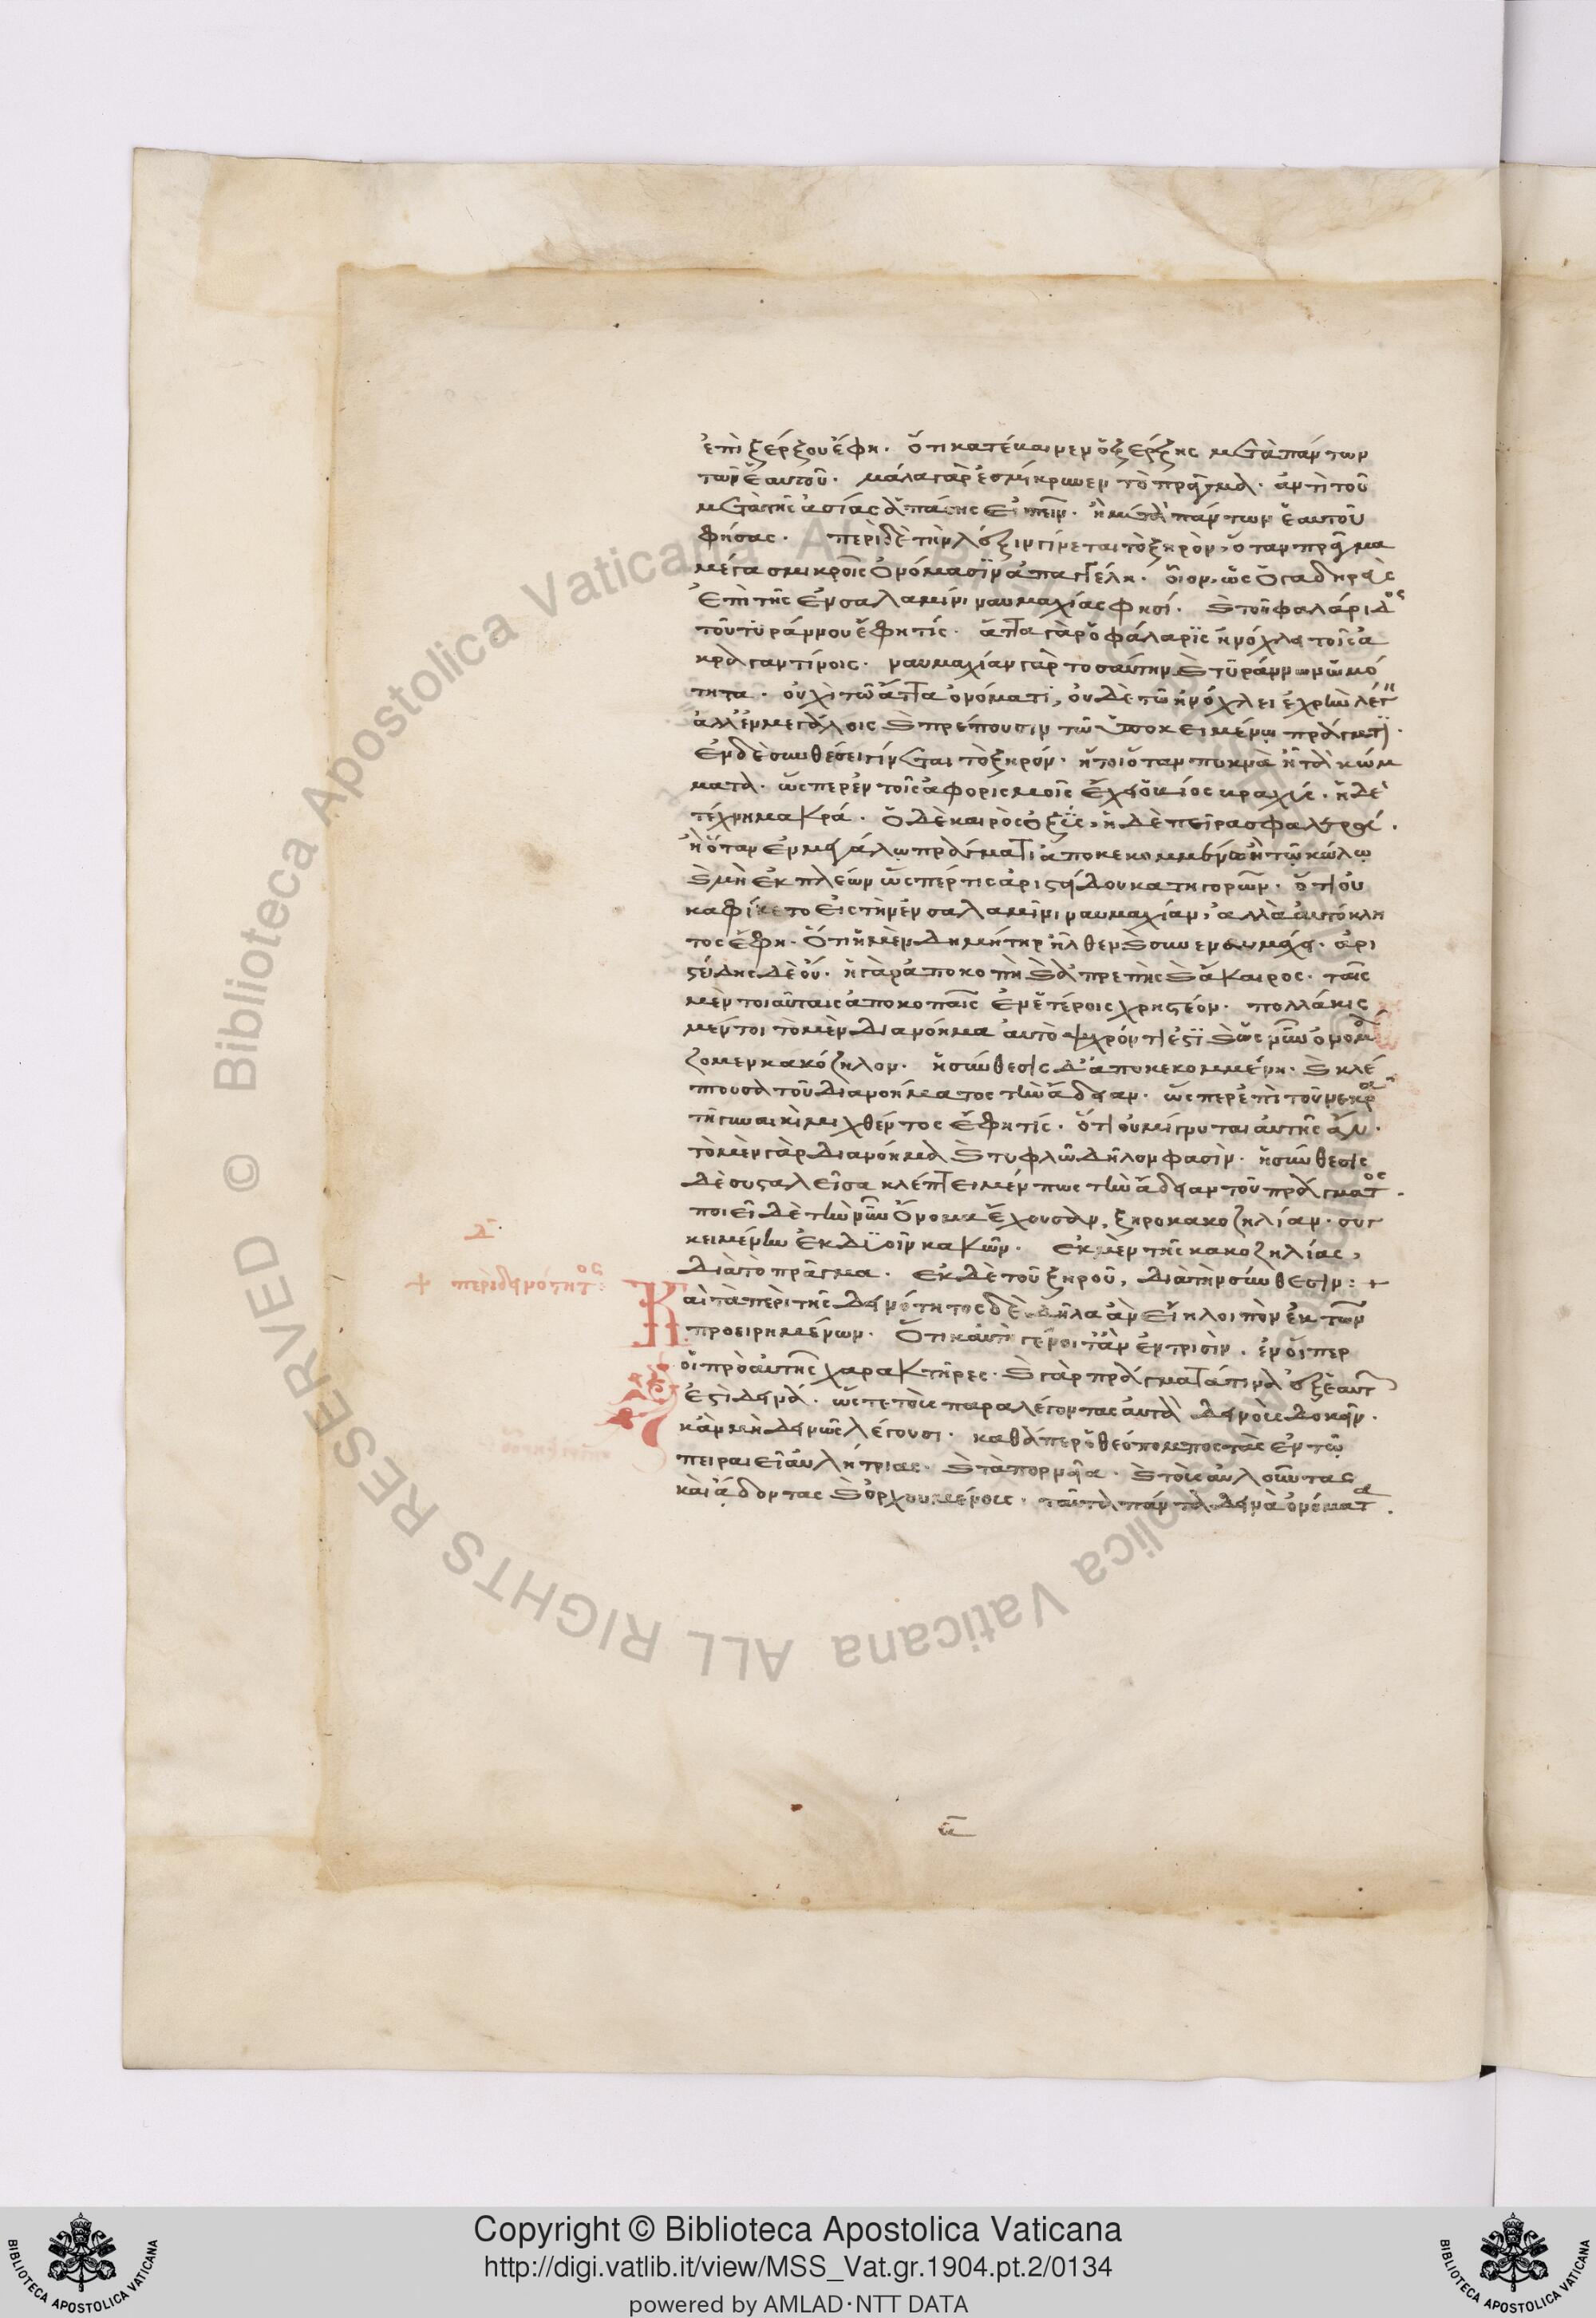 ἐπὶ ξέρξου ἔφη. ὅτι κατέβαινεν ὁ ξέρξης μετὰ πάντων
τῶν ἑαυτοῦ. μάλα γὰρ ἐσμίκρυνεν τὸ πρᾶγμα. ἀντὶ τοῦ
μετὰ τῆς ἀσίας ἁπάσης εἰπεῖν. ἢ μετὰ πάντων ἑαυτοῦ
φήσας. περὶ δὲ τὴν λέξιν γίνεται τὸ ξηρὸν, ὅταν πρᾶγμα
μέγα σμικροῖς ὀνόμασιν ἀπαγγέλη. οἷον, ὡς ὁ γαδηρεὺς
ἐπὶ τῆς ἐν σαλαμίνι ναυμαχίας φησί. καὶ τοῦ φαλάριδος
τοῦ τυράννου ἔφη τίς. ἄττα γὰρ ὁ φάλαρις ἠνόχλει τοῖς ἀ
κραγαντίνοις. ναυμαχίαν γὰρ τοσαύτην καὶ τυράννων ὠμό
τητα. οὐχὶ τῷ ἄττα ὀνόματι, οὐδὲ τῷ ἠνόχλει ἐχρῆν λέγειν
ἀλλ' ἐν μεγάλοις καὶ πρέπουσιν τῷ ὑποκειμένῳ πράγματι.
ἐν δὲ συνθέσει γίνεται τὸ ξηρόν. ἤτοι ὅταν πυκνὰ ᾖ τὰ κώμ
ματα. ὥσπερ ἐν τοῖς ἀφορισμοῖς ἔχει ὁ βίος βραχύς. ἡ δὲ
τέχνη μακρά. ὁ δὲ καιρὸς ὀξύς, ἡ δὲ πεῖρα σφαλερά.
ἢ ὅταν ἐν μεγάλῳ πράγματι ἀποκεκομμένον ᾖ τῷ κώλῳ
καὶ μὴ ἐκπλεων ὥσπέρ τις ἀριστείδου κατηγορῶν. ὅτι οὐ
κ ἀφίκετο εἰς τὴν ἐν σαλαμῖνι ναυμαχίαν, ἀλλὰ αὐτόκλη
τος ἔφη. ὅτι ἡ μὲν δημήτηρ ἦλθεν καὶ συνεναυμάχει. ἀρι
στείδης δὲ οὔ. ἡ γὰρ ἀποκοπὴ καὶ ἀπρεπὴς καὶ ἄκαιρος. ταῖς
μὲν τοιαύταις ἀποκοπαῖς ἐν ἑτέροις χρηστέον. πολλάκις
μέντοι τὸ μὲν διανόημα αὐτὸ ψυχρόν τι ἐστὶ καὶ ὡς νῦν ὀνομά
ζομεν κακόζηλον. ἡ σύνθεσις δ' ἀποκεκομμένη. καὶ κλέ
πτουσα τοῦ διανοήματος τὴν ἄδειαν. ὥσπερ ἐπὶ τοῦ νεκρᾷ
τῇ γυναικὶ μιχθέντος ἔφη τίς. ὅτι οὐ μίγνυται αὐτῆς ἂν.
τὸ μὲν γὰρ διανόημα καὶ τυφλῷ δῆλον φασίν. ἡ σύνθεσις
δὲ συσταλεῖσα κλέπτει μέν πως τὴν ἄδειαν τοῦ πράγματος.
ποιεῖ δὲ τὴν νῦν ὄνομα ἔχουσαν, ξηροκακοζηλίαν. συγ
κειμένην ἐκ δυοῖν κακῶν. ἐκ μὲν τῆς κακοζηλίας,
διὰ τὸ πρᾶγμα. ἐκ δὲ τοῦ ξηροῦ, διὰ τὴν σύνθεσιν: +
δ.
+ περὶ δεινότητος:
Καὶ τὰ περὶ τῆς δεινότητος δὲ δῆλα ἂν εἴη λοιπὸν ἐκ τῶν
προειρημένων. ὅτι καὐτὴ γένοιτ' ἂν ἐν τρισὶν. ἐν οἷσπερ
οἱ πρὸ αὐτῆς χαρακτῆρες. καὶ γὰρ πράγματά τινα ἐξ ἑαυτῶν
ἐστὶ δεινά. ὥστε τοὺς παραλέγοντας αὐτὰ δεινοὺς δοκεῖν.
κἂν μὴ δεινῶς λέγουσι. καθάπερ ὁ θεόπομπος τὰς ἐν τῷ
πειραιεῖ αὐλητρίας. καὶ τὰ πορνεῖα. καὶ τοὺς αὐλοῦντας
καὶ ᾄδοντας καὶ ὀρχουμένους. ταῦτα πάντα δεινὰ ὀνόματα.